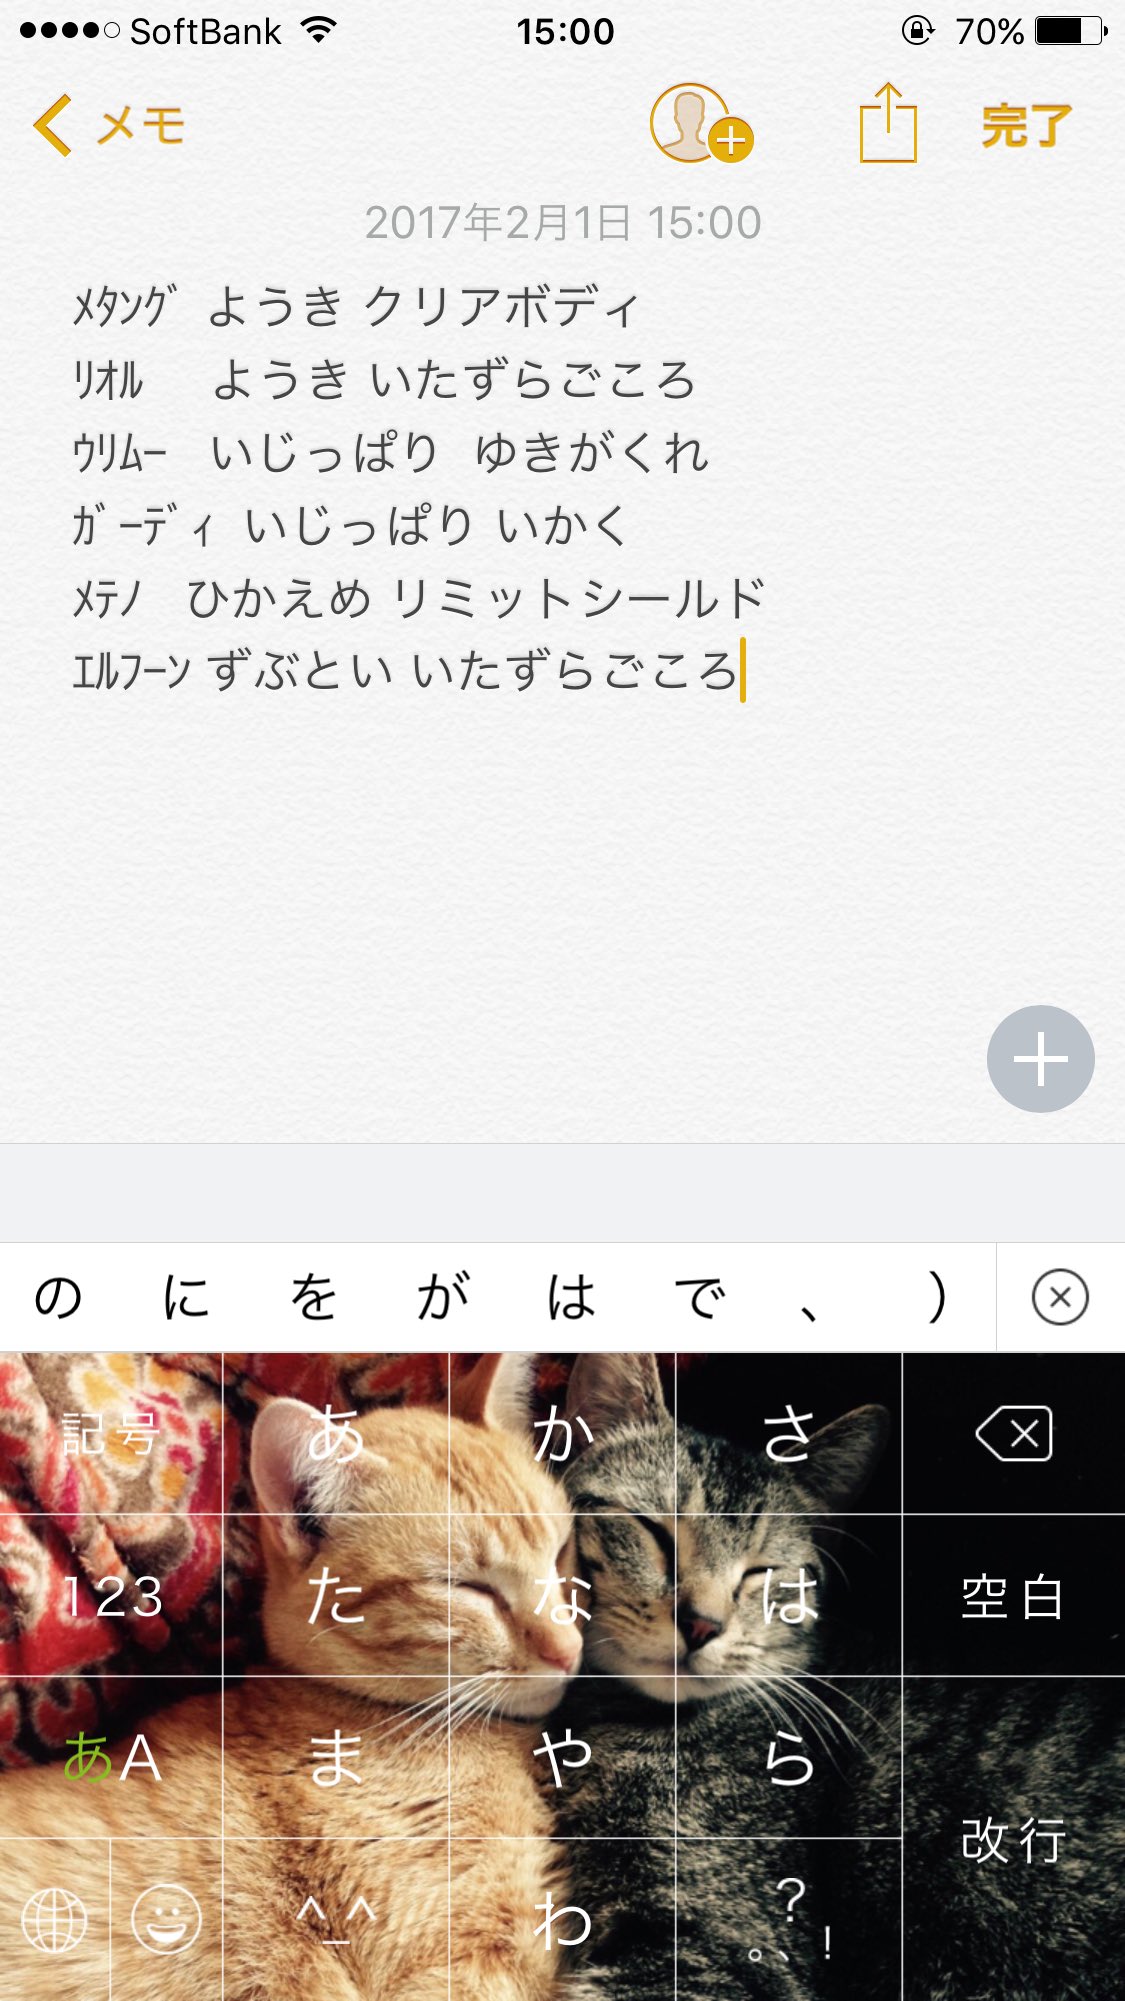 SoftBank 15:00 70%
メモ 完了
2017年2月1日 15:00
ﾒﾀﾝｸﾞ ようき クリアボディ
ﾘｵﾙ ようき いたずらごころ
ｳﾘﾑｰ いじっぱり ゆきがくれ
ｶﾞｰﾃﾞｨ いじっぱり いかく
ﾒﾃﾉ ひかえめ リミットシールド
ｴﾙﾌｰﾝ ずぶとい いたずらごころ
の に を が は で 、 )
記号 あ か さ
123 た な は 空白
あA ま や ら
改行
^_^ わ 。、?!